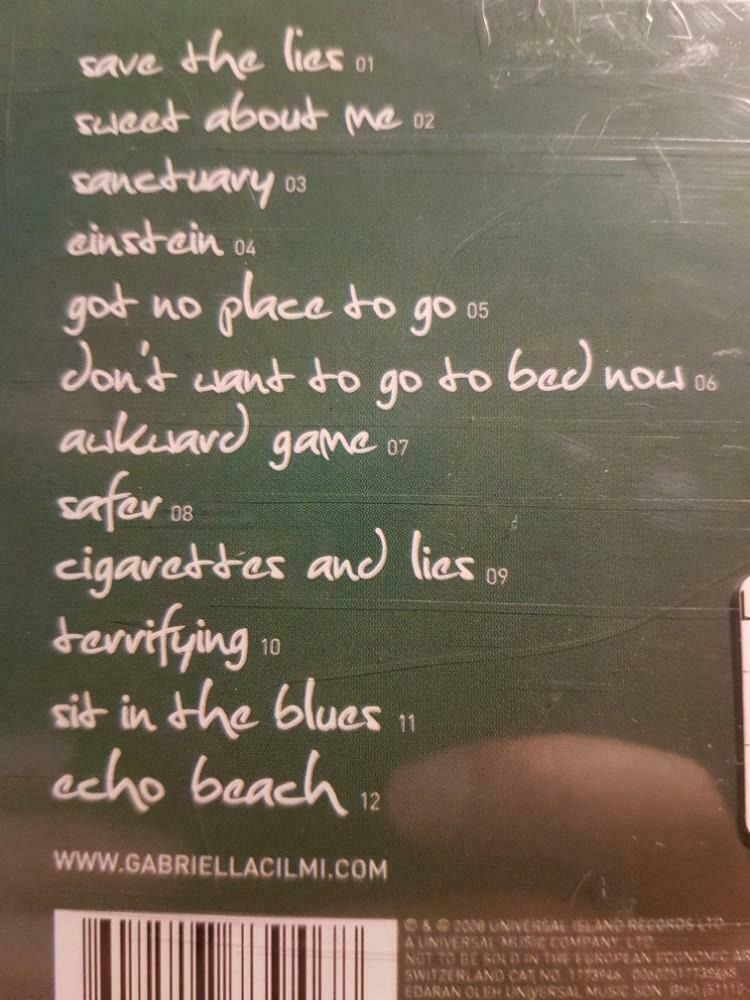 save the lies 01
sweet about me 02
sanctuary 03
einstein 04
got no place to go 05
don't want to go to bed now 06
awkward game 07
safer 08
cigarettes and lies 09
terrifying 10
sit in the blues 11
echo beach 12
WWW.GABRIELLACILMI.COM
℗ & © 2008 UNIVERSAL ISLAND RECORDS LTD
A UNIVERSAL MUSIC COMPANY LTD
NOT TO BE SOLD IN THE EUROPEAN ECONOMIC AR
SWITZERLAND CAT NO. 1773946
EDARAN OLEH UNIVERSAL MUSIC SDN. BHD.